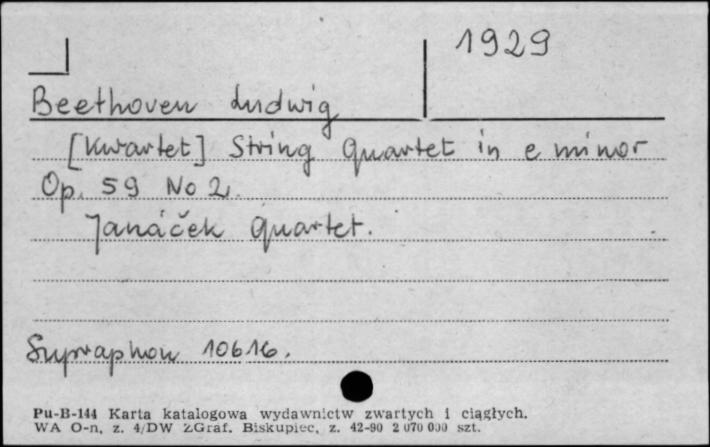 1929
Beethoven Ludwig
[Kwartet] String Quartet in e minor
Op. 59 No 2.
Janáček Quartet.
Supraphon 10616.
Pu-B-144 Karta katalogowa wydawnictw zwartych i ciągłych.
WA O-n, z. 4/DW ZGraf. Biskupiec, z. 42-90 2 070 000 szt.